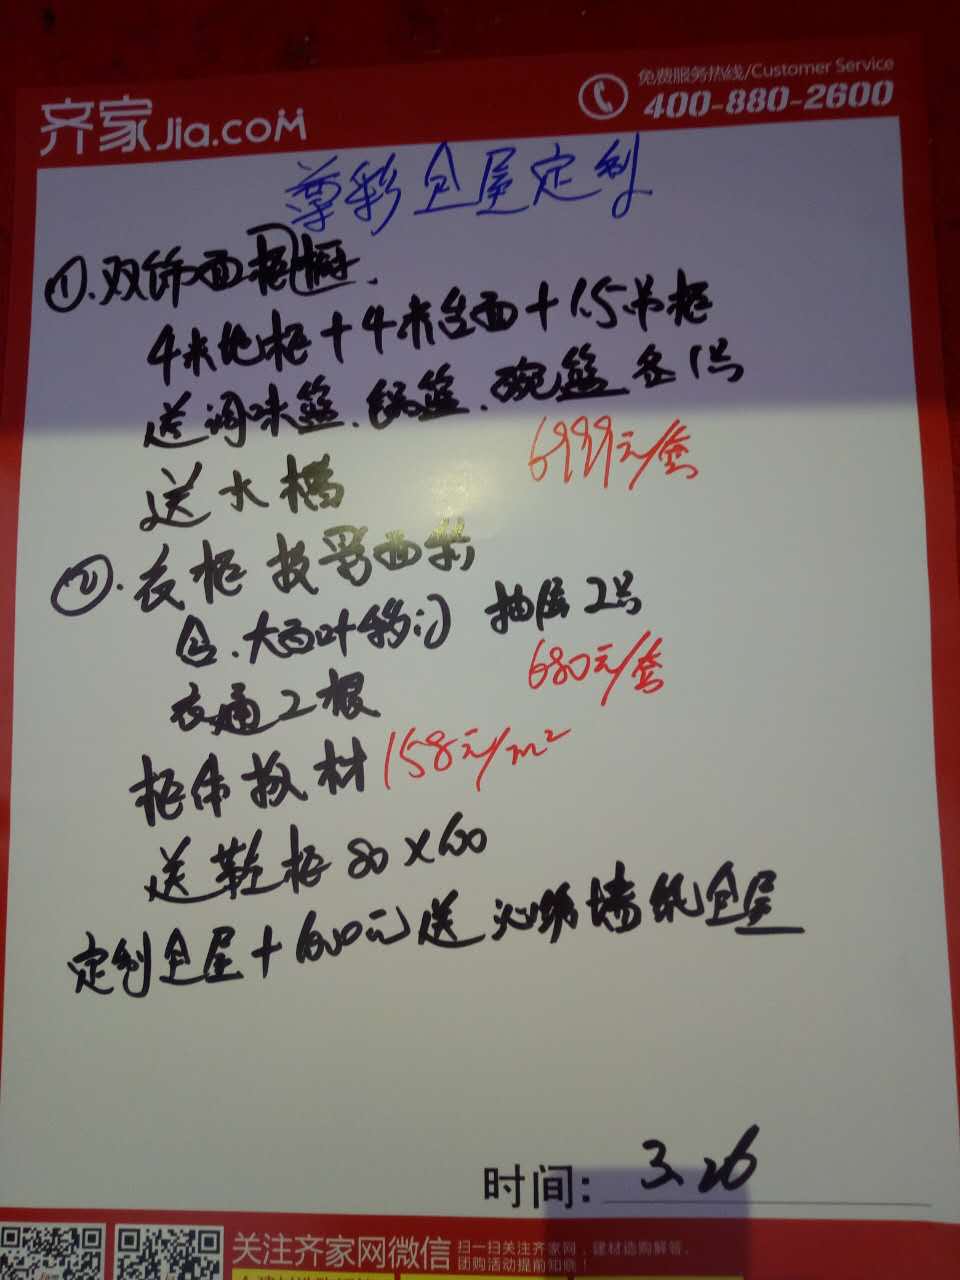 齐家Jia.coM
免费服务热线/Customer Service
400-880-2600
尊彩全屋定制
①.双饰面柜橱.
4米地柜+4米台面+1.5吊柜
送调味篮.锅篮.碗篮各1只
6999元/套
送水槽
②.衣柜 按
含.大百叶移门 抽屉2只
680元/套
衣通2根
柜体板材 158元/m²
送鞋柜80×60
定制全屋+600元送 墙纸全屋
时间: 3.26
关注齐家网微信
扫一扫关注齐家网，建材选购解答、
团购活动提前知晓！